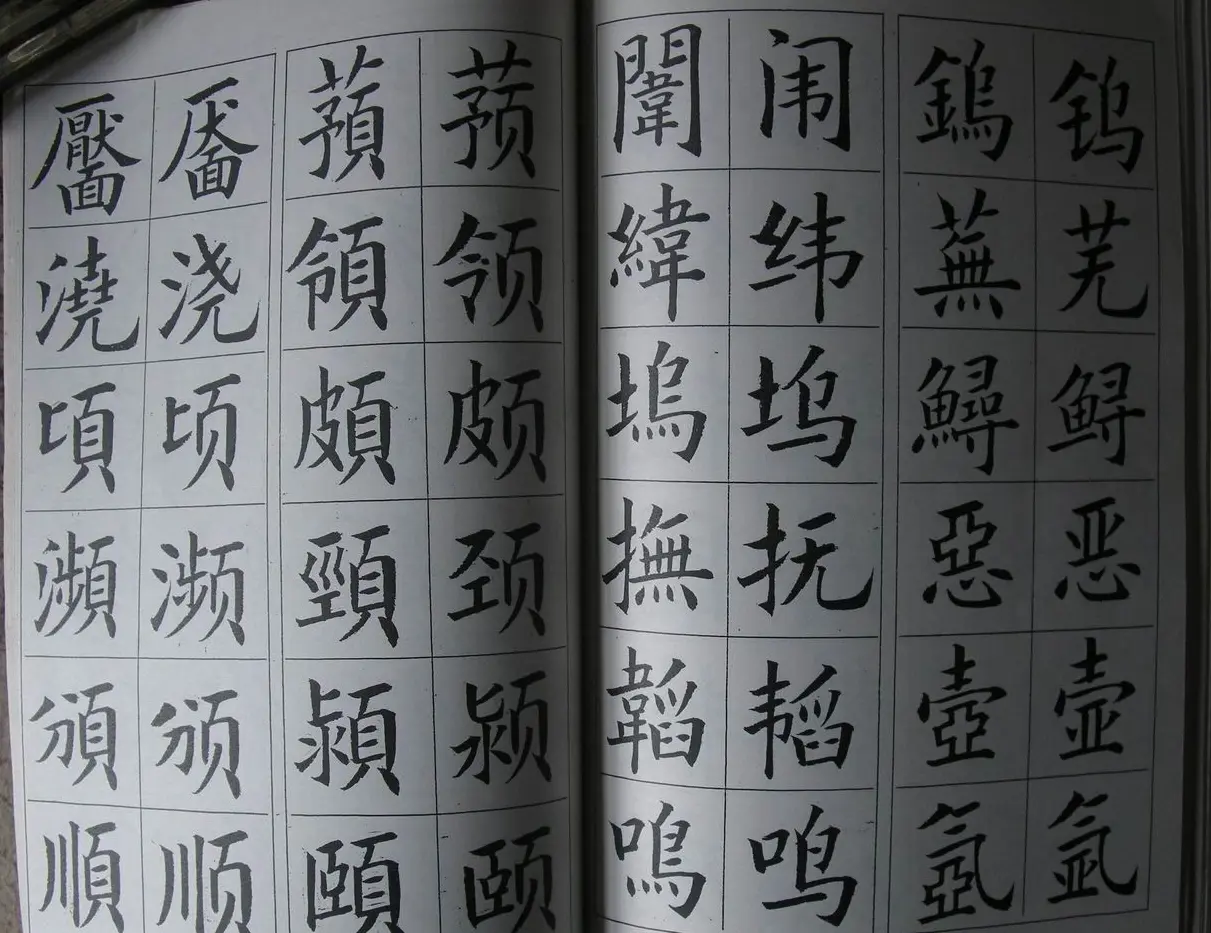 靨 靥 蕷 蓣 闈 闱 鎢 钨
澆 浇 領 领 緯 纬 蕪 芜
頃 顷 頗 颇 塢 坞 鱘 鲟
瀕 濒 頸 颈 撫 抚 惡 恶
頒 颁 潁 颍 韜 韬 壼 壸
順 顺 頤 颐 嗚 呜 氬 氩